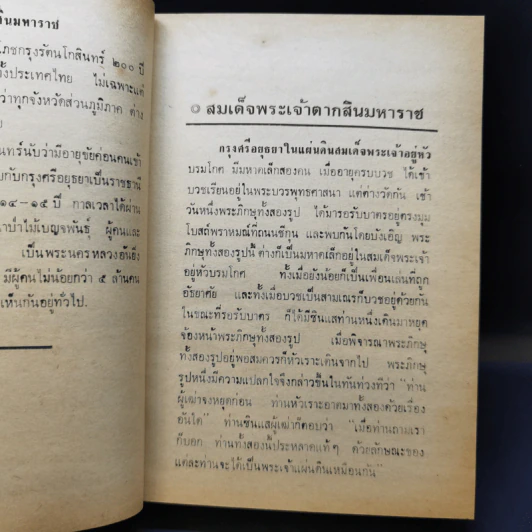 สินมหาราช
โภชกรุงรัตนโกสินทร์ ๒๐๐ ปี
ทั้งประเทศไทย ไม่เฉพาะแต่
ว่าทุกจังหวัดส่วนภูมิภาค ต่าง
นทร์นับว่ามีอายุขัยค่อนคนเข้า
ยกับกรุงศรีอยุธยาเป็นราชธานี
๑๔-๑๕ ปี กาลเวลาได้ผ่าน
าป่าไม้เบญจพันธุ์ ผู้คนและ
เป็นพระนครหลวงอันยิ่ง
มีผู้คนไม่น้อยกว่า ๕ ล้านคน
เห็นกันอยู่ทั่วไป.
๐ สมเด็จพระเจ้าตากสินมหาราช
กรุงศรีอยุธยาในแผ่นดินสมเด็จพระเจ้าอยู่หัว
บรมโกศ มีมหาดเล็กสองคน เมื่ออายุครบบวช ได้เข้า
บวชเรียนอยู่ในพระบวรพุทธศาสนา แต่ต่างวัดกัน เช้า
วันหนึ่งพระภิกษุทั้งสองรูป ได้มารอรับบาตรอยู่ตรงมุม
โบสถ์พราหมณ์ที่ถนนชีกุน และพบกันโดยบังเอิญ พระ
ภิกษุทั้งสองรูปนี้ ต่างก็เป็นมหาดเล็กอยู่ในสมเด็จพระเจ้า
อยู่หัวบรมโกศ ทั้งเมื่อยังน้อยก็เป็นเพื่อนเล่นที่ถูก
อัธยาศัย และทั้งเมื่อบวชเป็นสามเณรก็บวชอยู่ด้วยกัน
ในขณะที่รอรับบาตร ก็ได้มีซินแสท่านหนึ่งเดินมาหยุด
จ้องหน้าพระภิกษุทั้งสองรูป เมื่อพิจารณาพระภิกษุ
ทั้งสองรูปอยู่พอสมควรก็หัวเราะเดินจากไป พระภิกษุ
รูปหนึ่งมีความแปลกใจจึงกล่าวขึ้นในทันท่วงทีว่า “ท่าน
ผู้เฒ่าจงหยุดก่อน ท่านหัวเราะอาตมาทั้งสองด้วยเรื่อง
อันใด” ท่านซินแสผู้เฒ่าก็ตอบว่า “เมื่อท่านถามเรา
ก็บอก ท่านทั้งสองนี้ประหลาดแท้ๆ ด้วยลักษณะของ
แต่ละท่านจะได้เป็นพระเจ้าแผ่นดินเหมือนกัน”